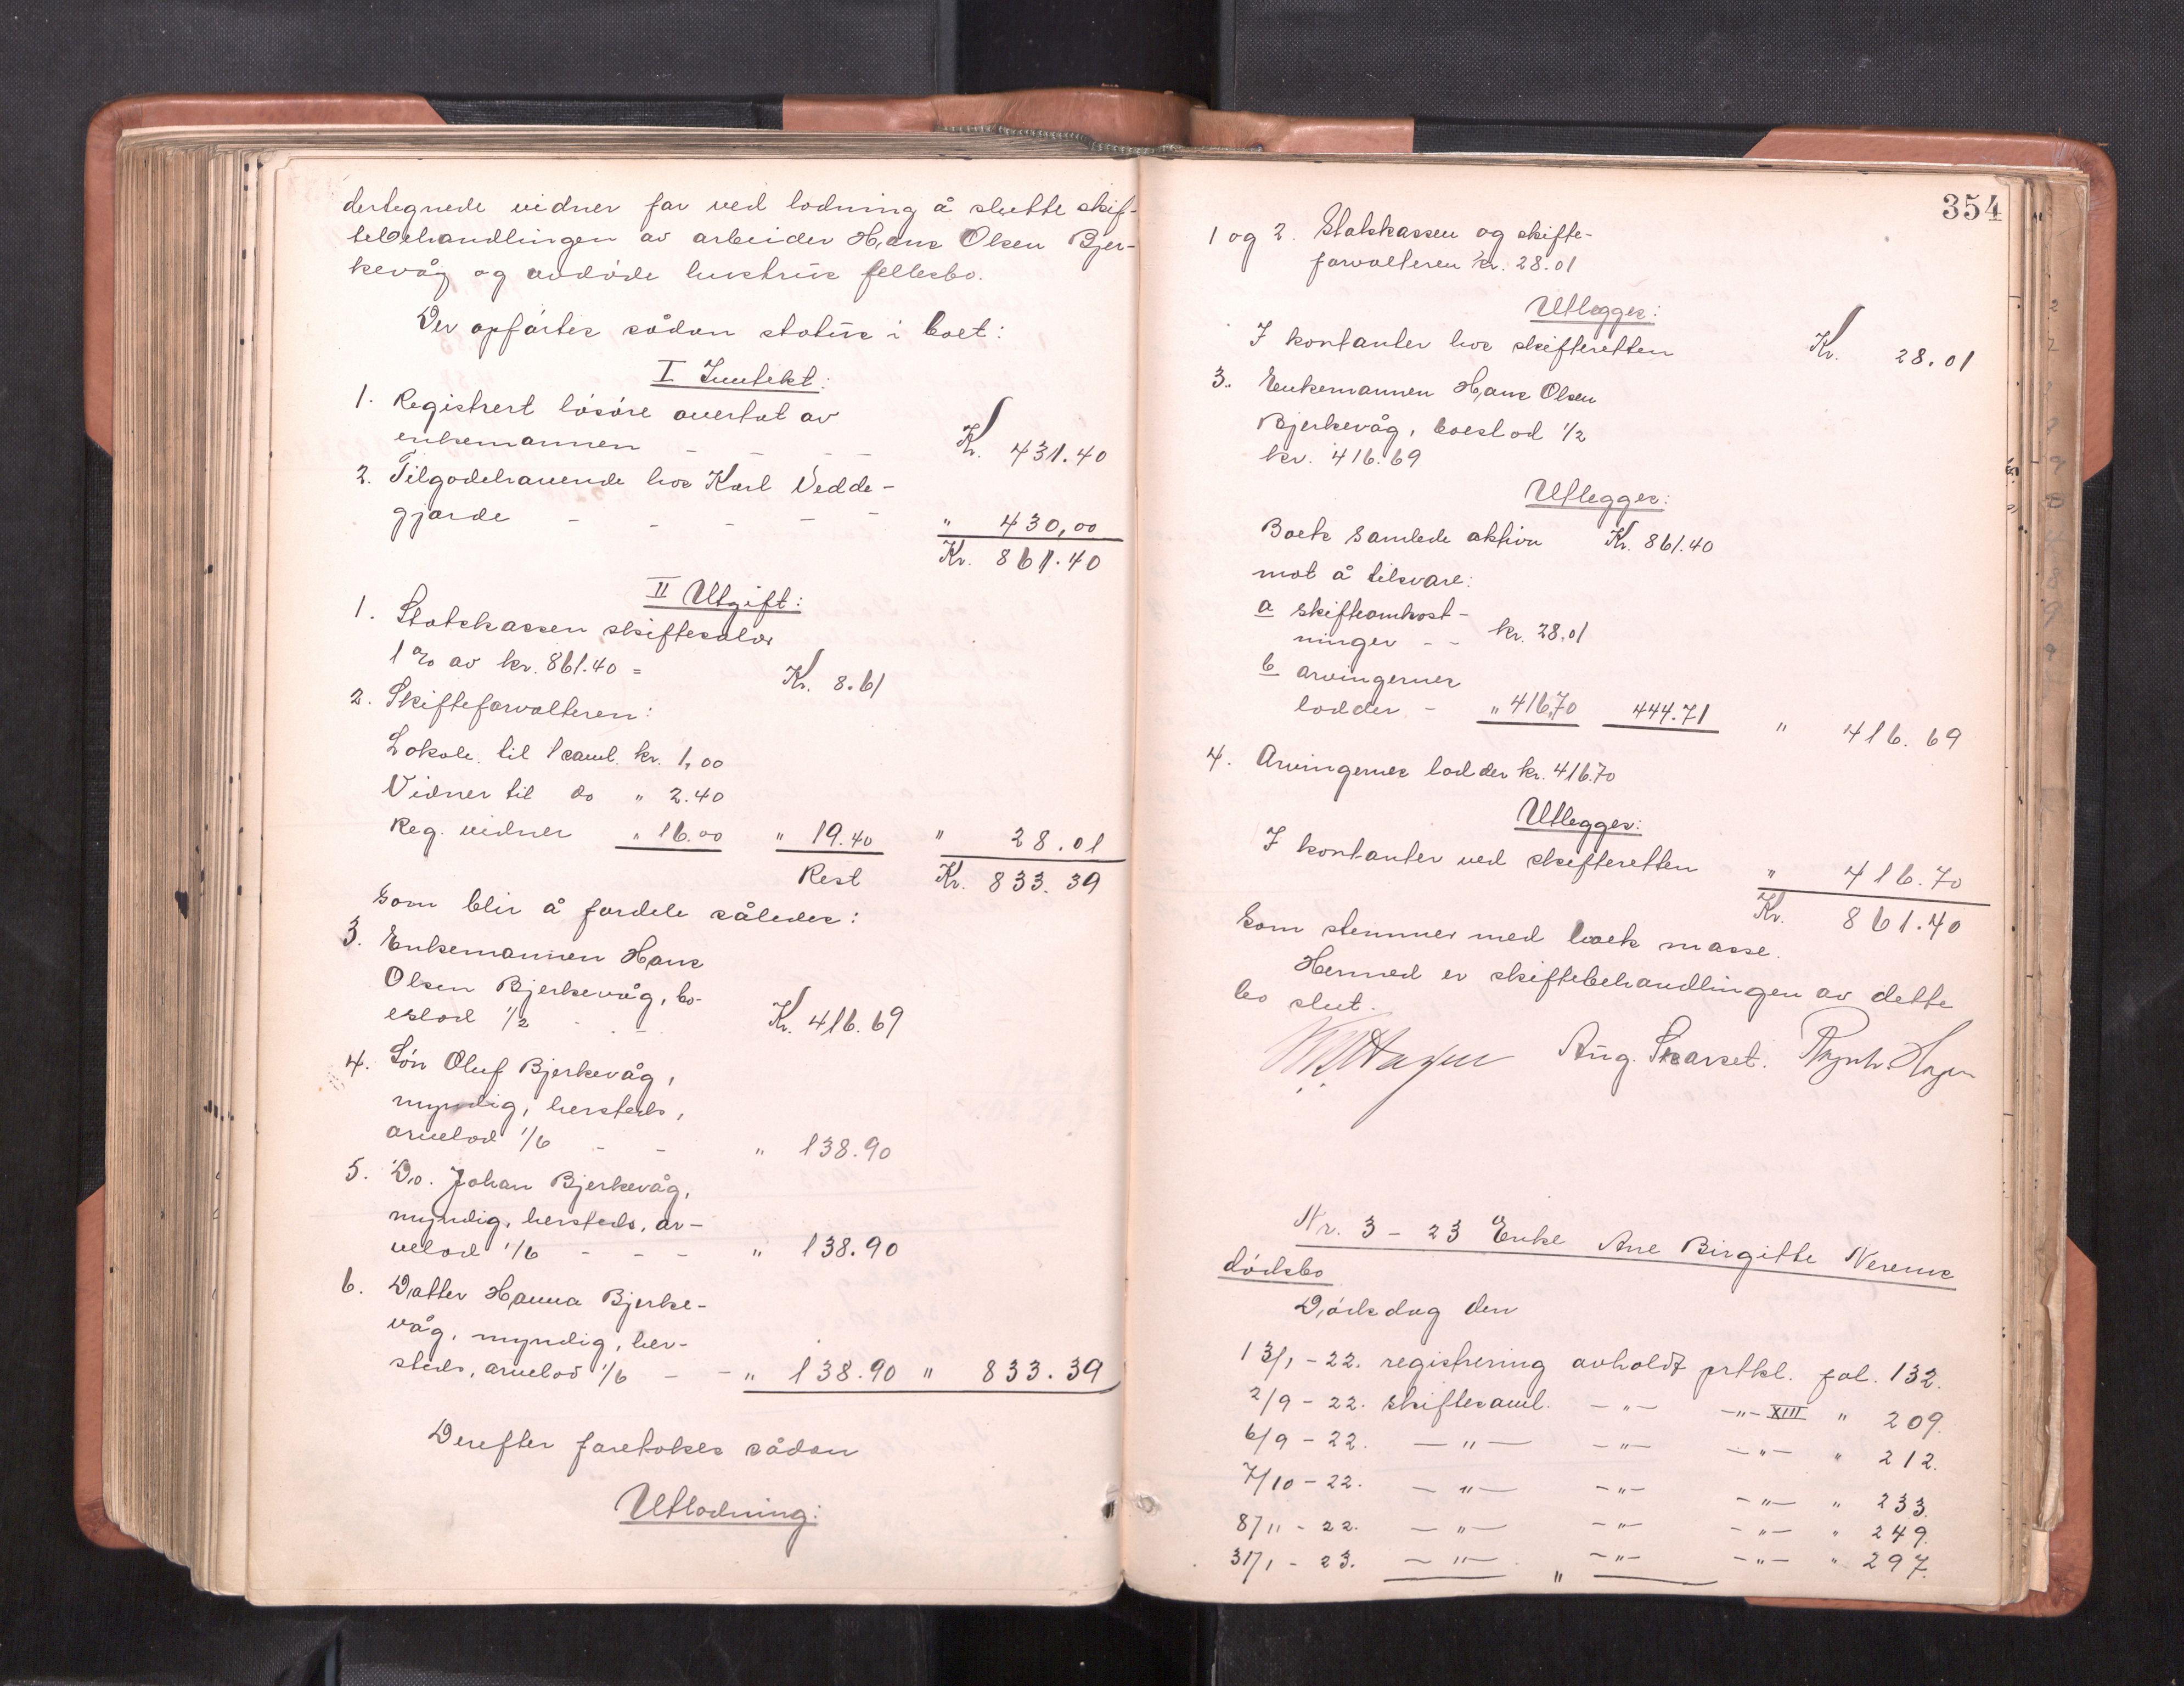 dertegnede vidner for ved lodning å slutte skif-
tebehandlingen av arbeider Hans Olsen Bjer-
kevåg og avdøde hustrus fellesbo.
Der opførtes sådan status i boet:
I Inntekt:
1. Registrert løsøre overtat av
enkemannen - - - Kr. 431.40
2. Tilgodehavende hos Karl Vedde-
gjærde - - - - - " 430,00
Kr. 861.40
II Utgift:
1. Statskassen skiftesalær
1 % av kr. 861.40 = Kr. 8.61
2. Skifteforvalteren:
Lokale til 1 saml. kr. 1,00
Vidner til do " 2.40
Reg. vidner " 16.00 " 19.40 " 28.01
Rest Kr. 833.39
Som blir å fordele således:
3. Enkemannen Hans
Olsen Bjerkevåg, bo-
eslod 1/2 - - Kr. 416.69
4. Søn Oluf Bjerkevåg,
myndig, hersteds,
arvelod 1/6 - - " 138.90
5. Do. Johan Bjerkevåg,
myndig, hersteds, ar-
velod 1/6 - - - " 138.90
6. Datter Hanna Bjerke-
våg, myndig, her-
steds, arvelod 1/6 - - " 138.90 " 833.39
Derefter foretokes sådan
Utlodning:
354
1 og 2. Statskassen og skifte-
forvalteren kr. 28.01
Utlegges:
I kontanter hos skifteretten Kr. 28.01
3. Enkemannen Hans Olsen
Bjerkevåg, boeslod 1/2
kr. 416.69
Utlegges:
Boets samlede aktiva Kr. 861.40
mot å tilsvare:
a skifteomkost-
ninger - - kr. 28.01
b arvingernes
lodder - " 416,70 444.71 " 416.69
4. Arvingernes lodder kr. 416.70
Utlegges:
I kontanter ved skifteretten " 416.70
Kr. 861.40
Som stemmer med boets masse.
Hermed er skiftebehandlingen av dette
bo slut.
Hagen Aug. Skarset. Hagen
Nr. 3 - 23 Enke Ane Birgitte Nerems
dødsbo
Dødsdag den
13/1 - 22. registrering avholdt prtkl. fol. 132.
2/9 - 22. skiftesaml. -"- -"- XIII " 209.
6/9 - 22. -"- -"- -"- " 212.
7/10 - 22. -"- -"- -"- " 233.
8/11 - 22. -"- -"- -"- " 249.
31/1 - 23. -"- -"- -"- " 297.
"